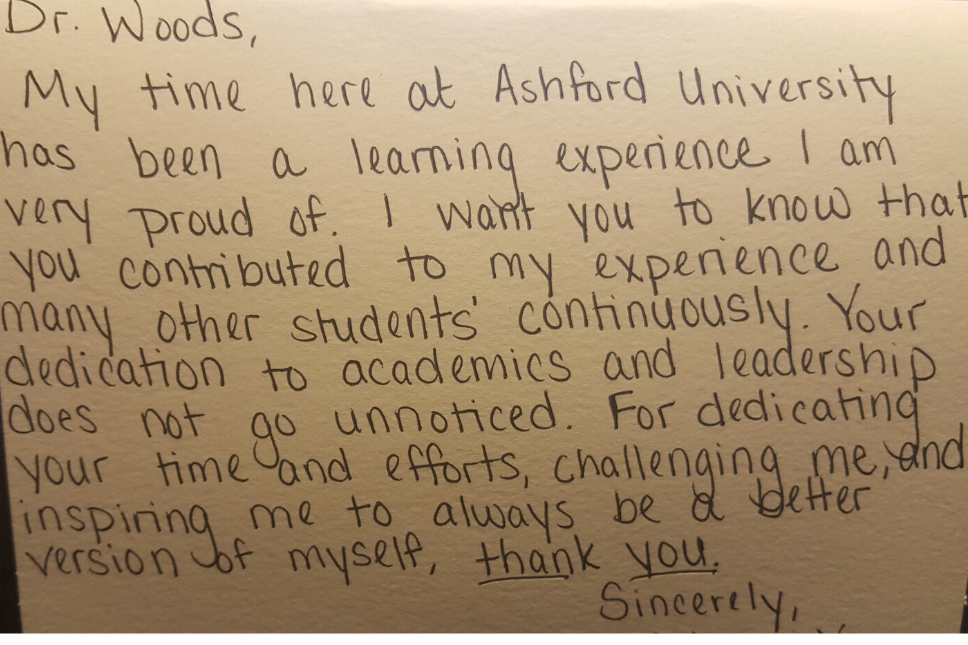 Dr. Woods,
My time here at Ashford University
has been a learning experience I am
very proud of. I want you to know that
you contributed to my experience and
many other students' continuously. Your
dedication to academics and leadership
does not go unnoticed. For dedicating
your time and efforts, challenging me, and
inspiring me to always be a better
version of myself, thank you.
Sincerely,